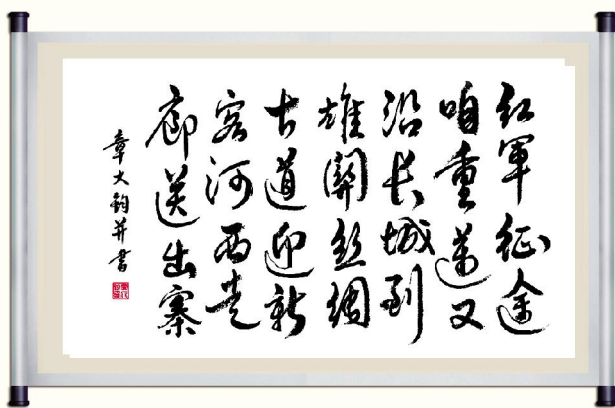 红軍征途
咱重邁又
沿长城到
雄關丝绸
古道迎新
客河西走
廊送出寨
章大钧并書